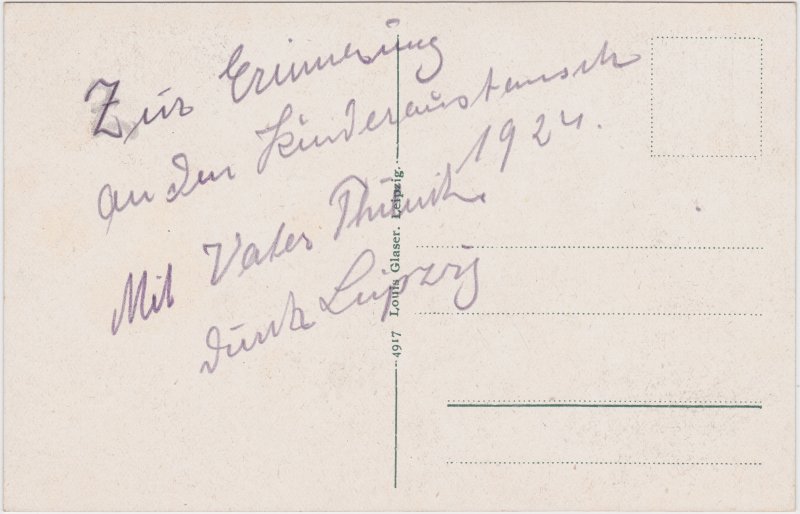 Zur Erinnerung
an den Kinderaustausch
1924.
Mit Vater
durch Leipzig
4917 Louis Glaser. Leipzig.